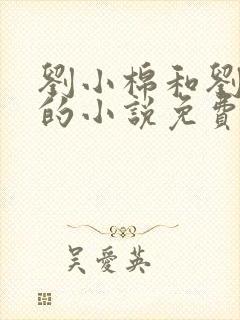 劉小棉和劉
的小說免費
吳愛英